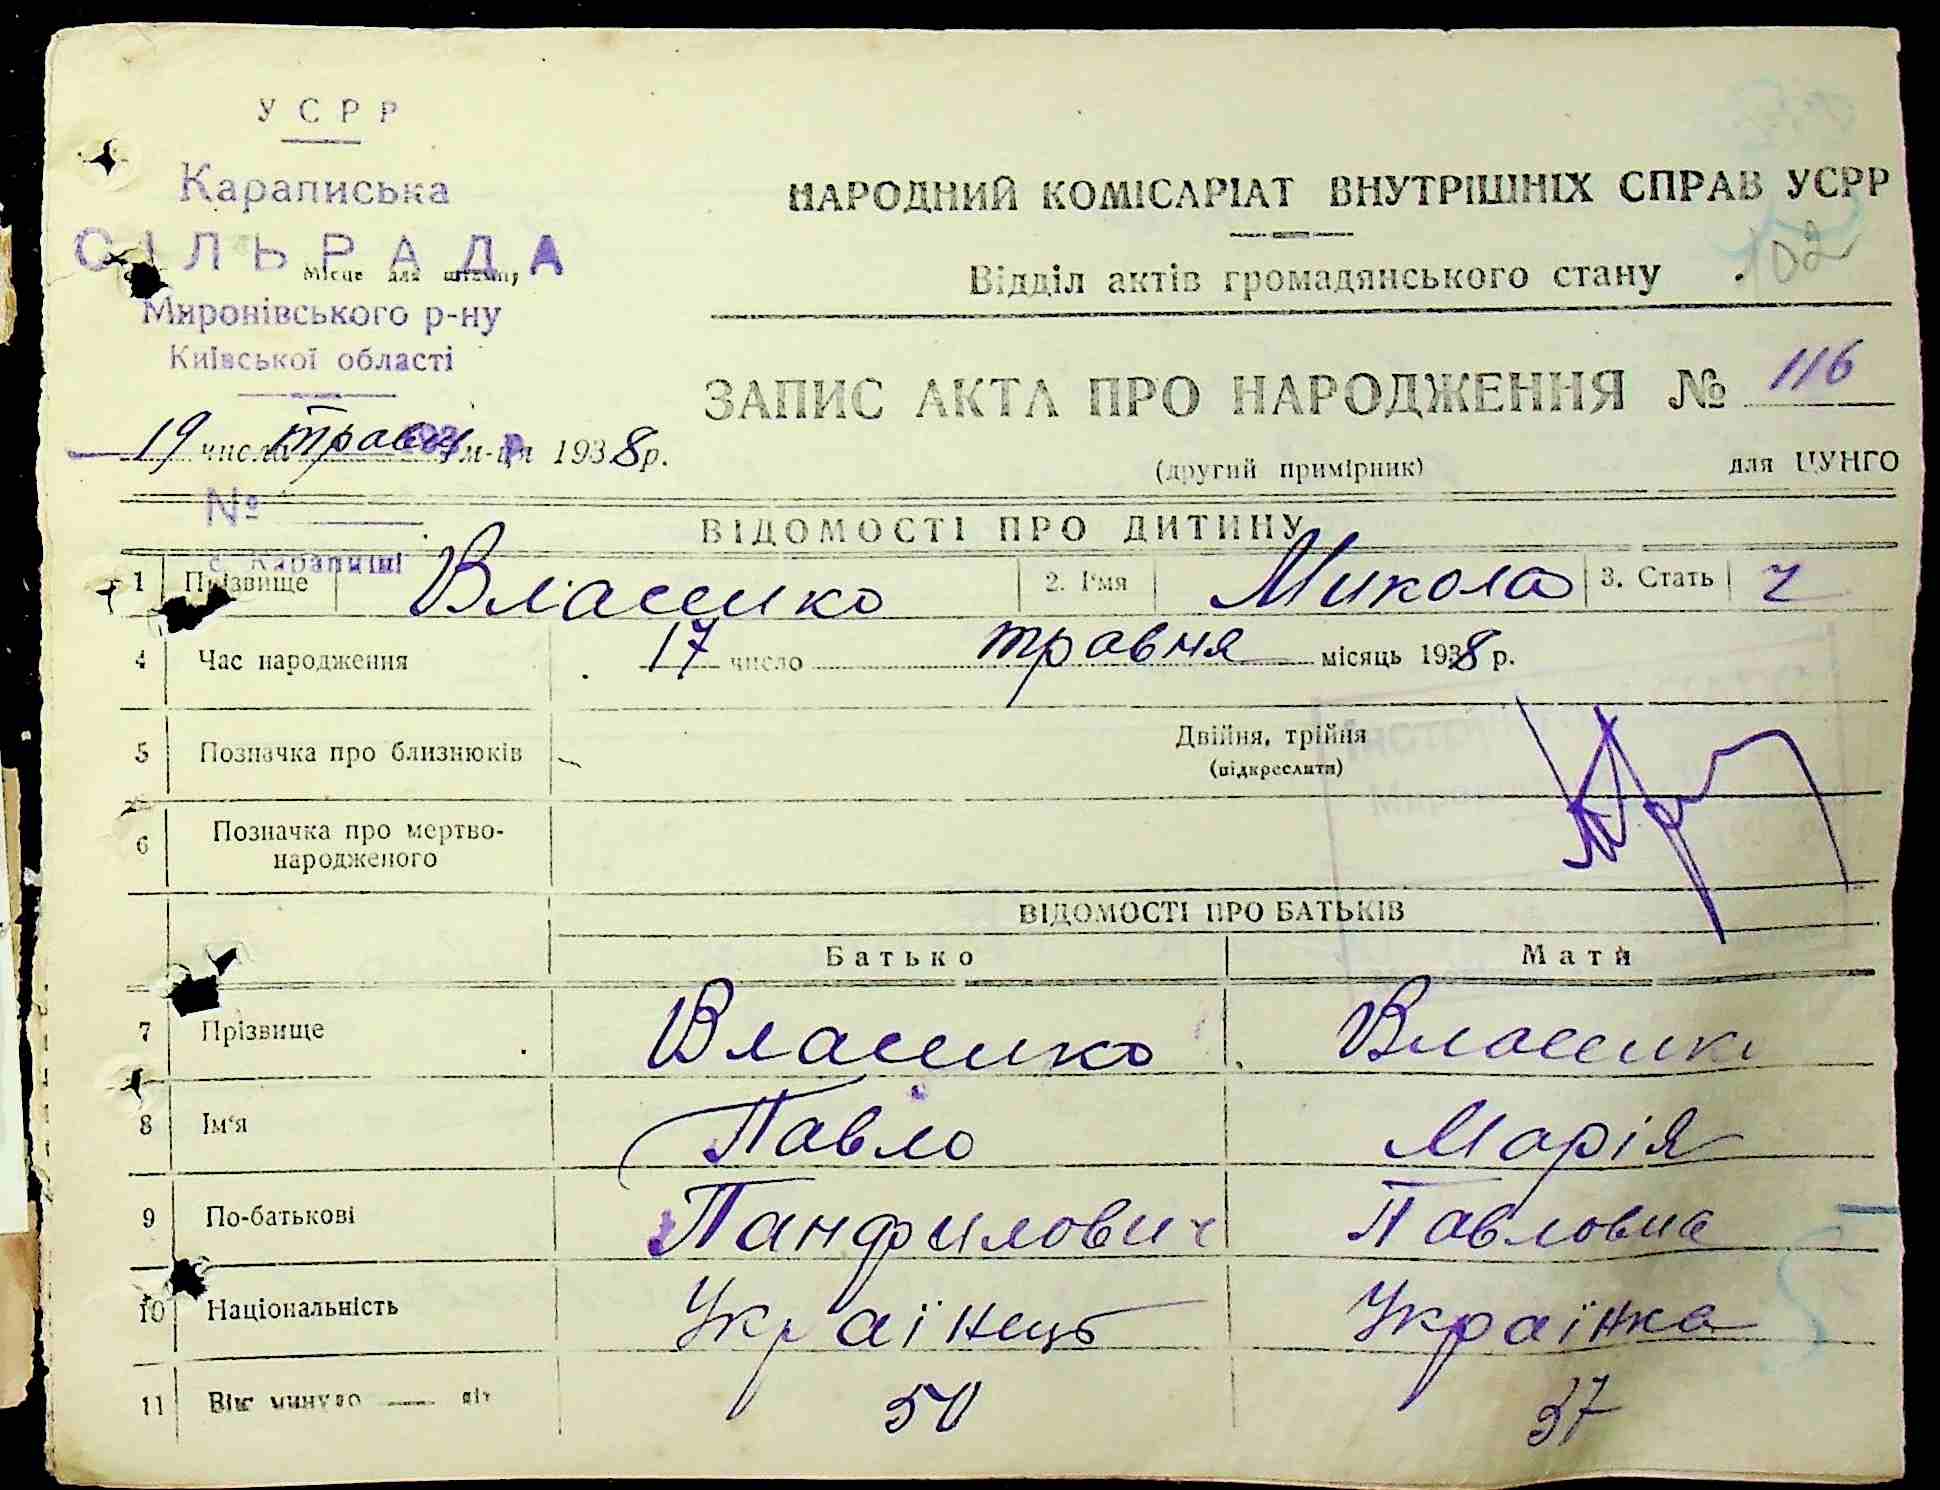 УСРР
Караписька
СІЛЬРАДА
Місце для штампу
Миронівського р-ну
Київської області
19 числа травн м-ця 1938 р.
№
с. Карапиші
НАРОДНИЙ КОМІСАРІАТ ВНУТРІШНІХ СПРАВ УСРР
Відділ актів громадянського стану
102
ЗАПИС АКТА ПРО НАРОДЖЕННЯ № 116
(другий примірник) для ЦУНГО
ВІДОМОСТІ ПРО ДИТИНУ
1 Прізвище Власенко 2. Ім'я Микола 3. Стать ч
4 Час народження 17 число травня місяць 1938 р.
5 Позначка про близнюків Двійня, трійня
(підкреслити)
6 Позначка про мертво-
народженого
ВІДОМОСТІ ПРО БАТЬКІВ
Батько Мати
7 Прізвище Власенко Власенк
8 Ім'я Павло Марія
9 По-батькові Панфилович Павловна
10 Національність Українець Українка
11 Вік минуло — літ 50 37